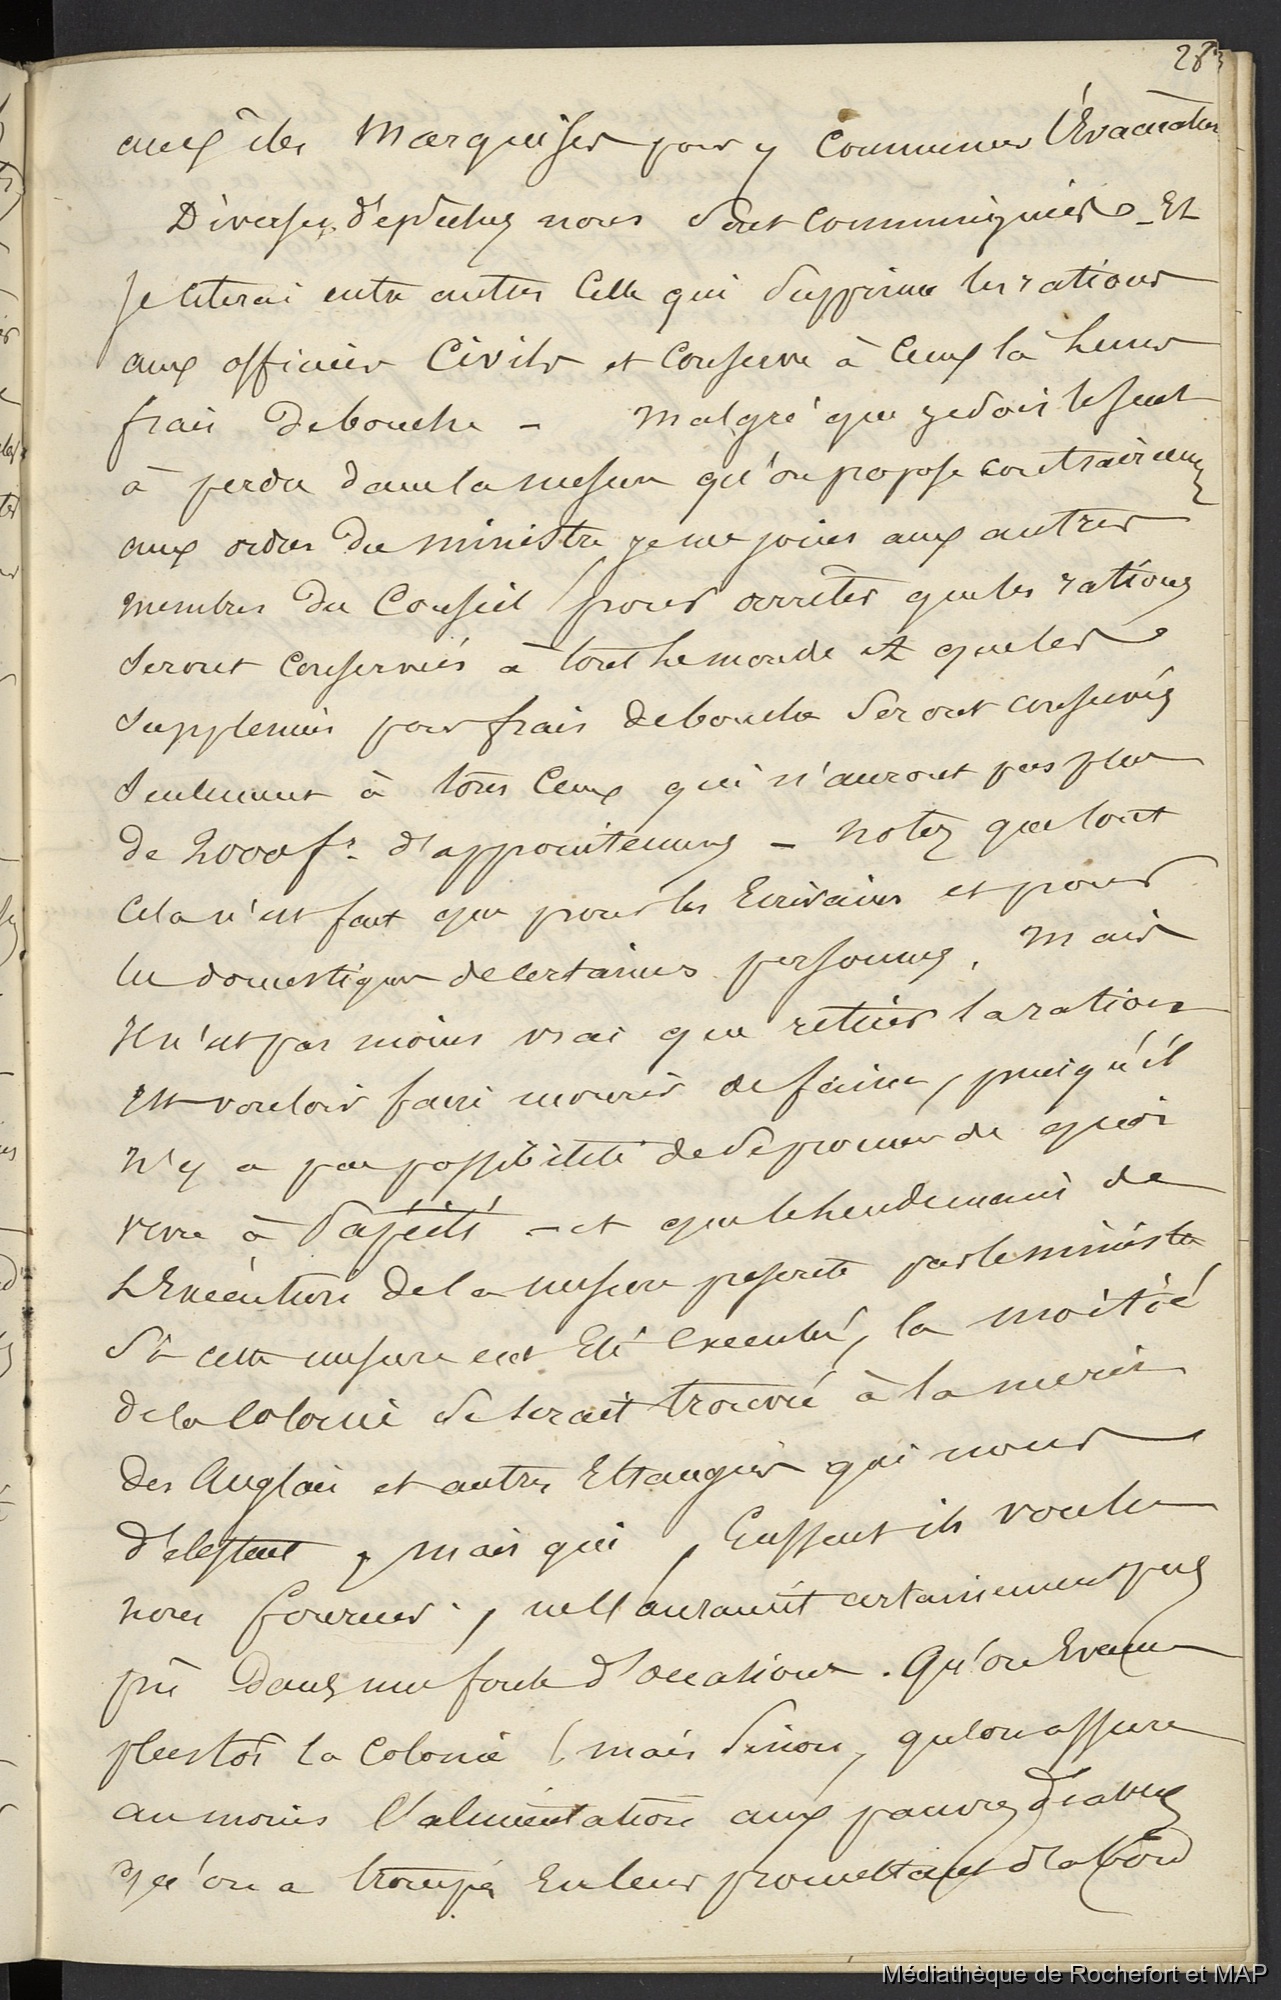 283
aux îles Marquises pour y commencer l'Évacuation
Diverses dépêches nous sont communiquées - Et
je citerai entre autres celle qui supprime les rations
aux officiers Civils et conserve à ceux là leurs
frais de bouche - Malgré que je sois le seul
à perdre dans la mesure qu'on propose contrairement
aux ordres du ministre je me joins aux autres
membres du Conseil pour arrêter que les rations
seront conservées à tout le monde et que les
supplémens pour frais de bouche seront conservés
seulement à tous ceux qui n'auront pas plus
de 2000 fs. d'appointemens - notez que tout
cela n'est fait que pour les Ecrivains et pour
les domestiques de certaines personnes. Mais
il n'est pas moins vrai que retirer la ration
est vouloir faire mourir de faim, puisqu'il
n'y a pas possibilité de se procurer de quoi
vivre à Papéiti - et que le lendemain de
l'Exécution de la mesure prescrite par le ministre
si cette mesure eut Eté Executée, la moitié
de la Colonie se serait trouvée à la merci
des Anglais et autres Etrangers qui nous
détestent, mais qui, Eussent ils voulu
nous fournir, ne l'auraient certainement pas
pû dans une foule d'occasions. Qu'on Evacue
plustôt la Colonie, mais sinon, qu'on assure
au moins l'alimentation aux pauvres diables
qu'on a trompés En leur promettant d'abord
Médiathèque de Rochefort et MAP